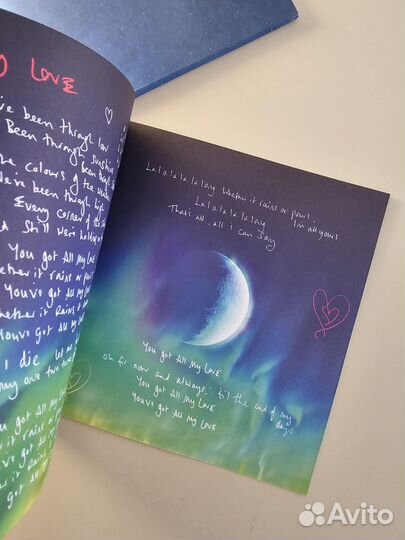 LOVE
've been through low
Been through sunshine
been through
the colours of the
We've been through life
Every corner of the
d still we're holding
You got All My LOVE
Whether it rains or pours
You've got All My LOVE
Whether it Rains
You've got All My
I die let
my
You got All My
it rains or
got All My
it Rains
got All My
Lalalalalalay Whether it rains or pours!
Lalalalalalay I'm all yours!
That's all.. all i can say
YOU GOT All MY LOVE
Oh for now and always. 'til the end of my
days
YOU GOT All MY LOVE
YOU'VE GOT All MY LOVE
Avito